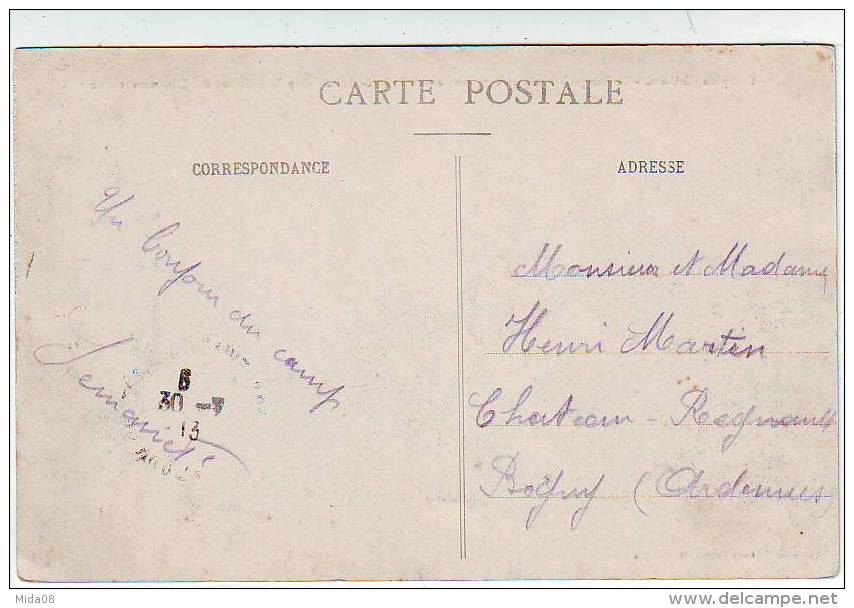 CARTE POSTALE
CORRESPONDANCE
ADRESSE
Un bonjour du camp
6
30 -3
13
Monsieur et Madame
Henri Martin
Chateau - Regnault
Bogny (Ardennes)
Mida08
delcampe.net